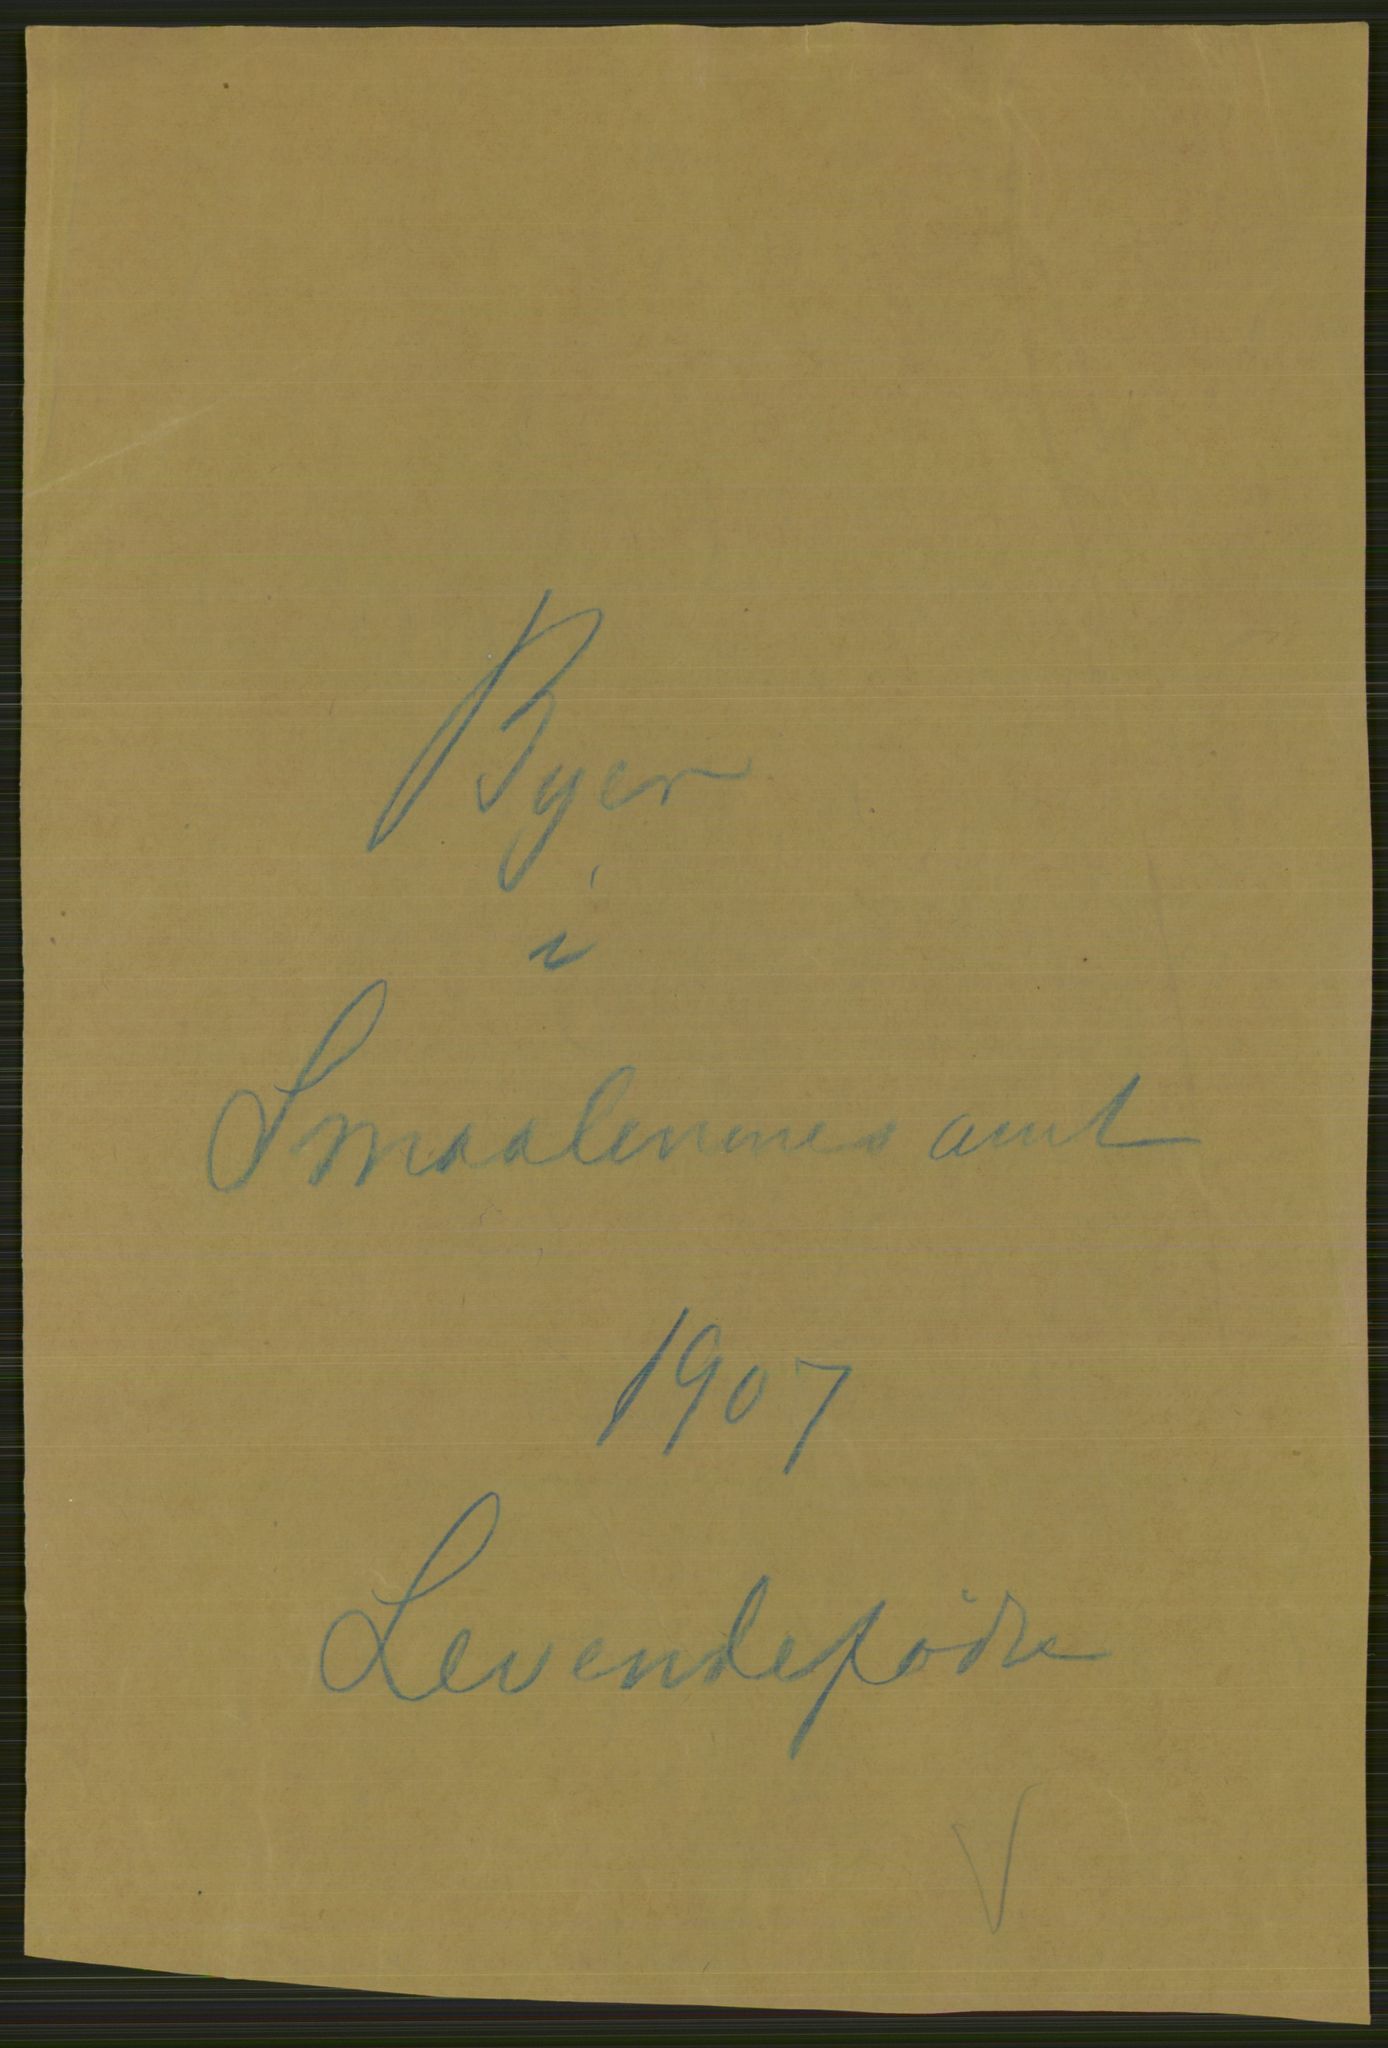 Byer
i
Smaalenenes amt
1907
Levendefødte
V